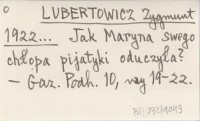 LUBERTOWICZ Zygmunt
1922... Jak Maryna swego
chłopa pijatyki oduczyła?
— Gaz. Podh. 10, nry 19-22.